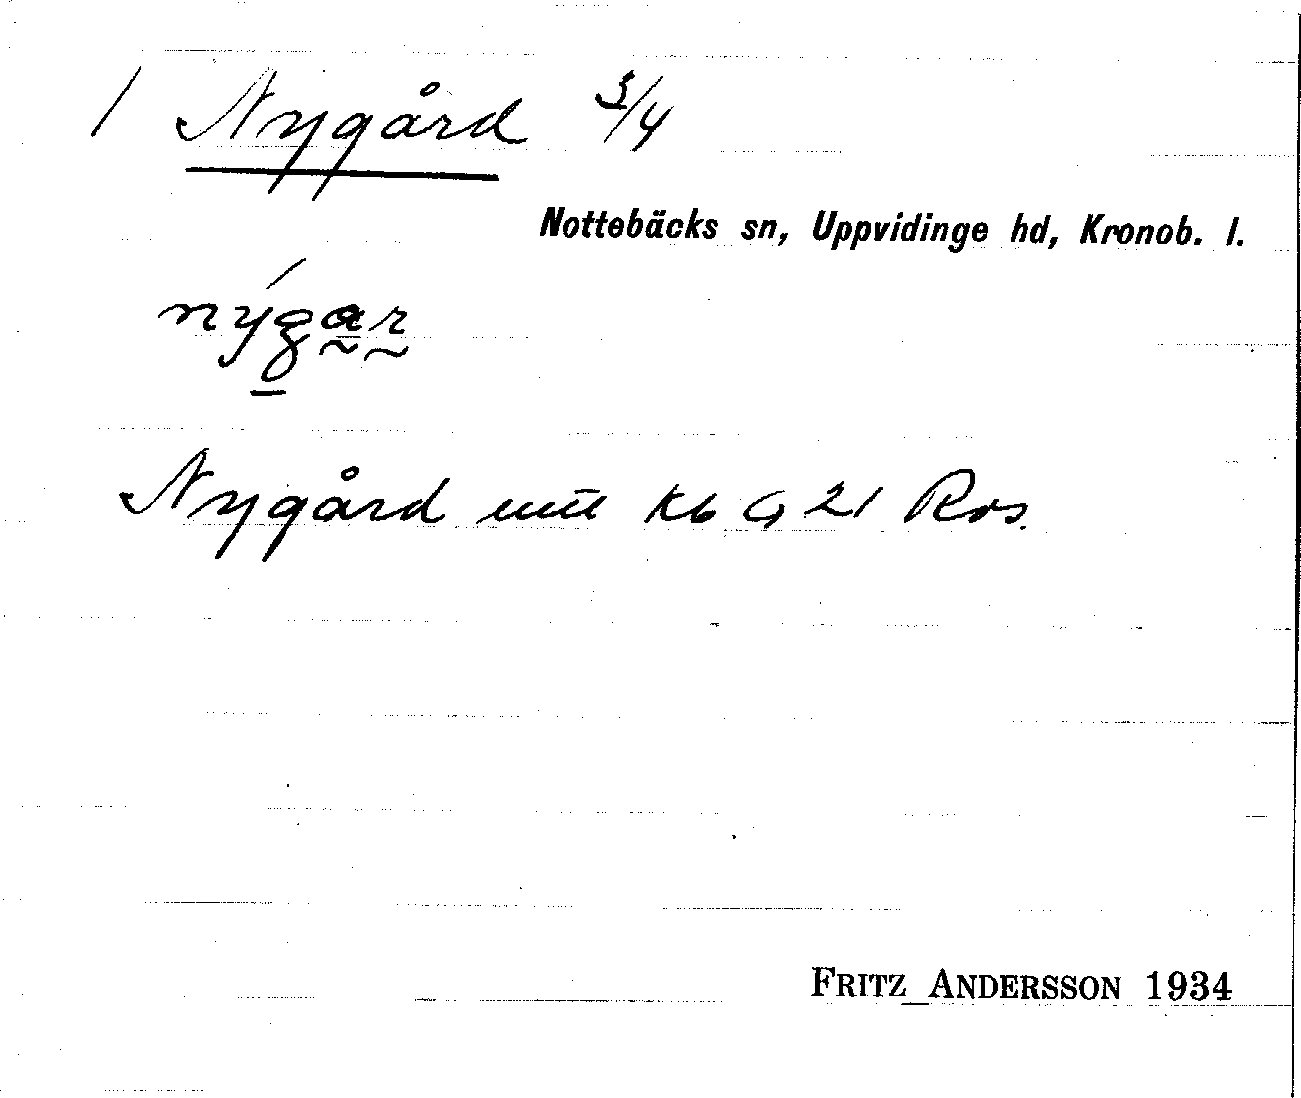 / Nygård 3/4
Nottebäcks sn, Uppvidinge hd, Kronob. l.
nýgar
Nygård Kb G 21 Ros.
FRITZ ANDERSSON 1934